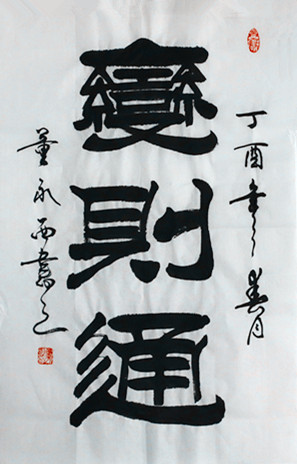 丁酉年之春月
變則通
董永西書之